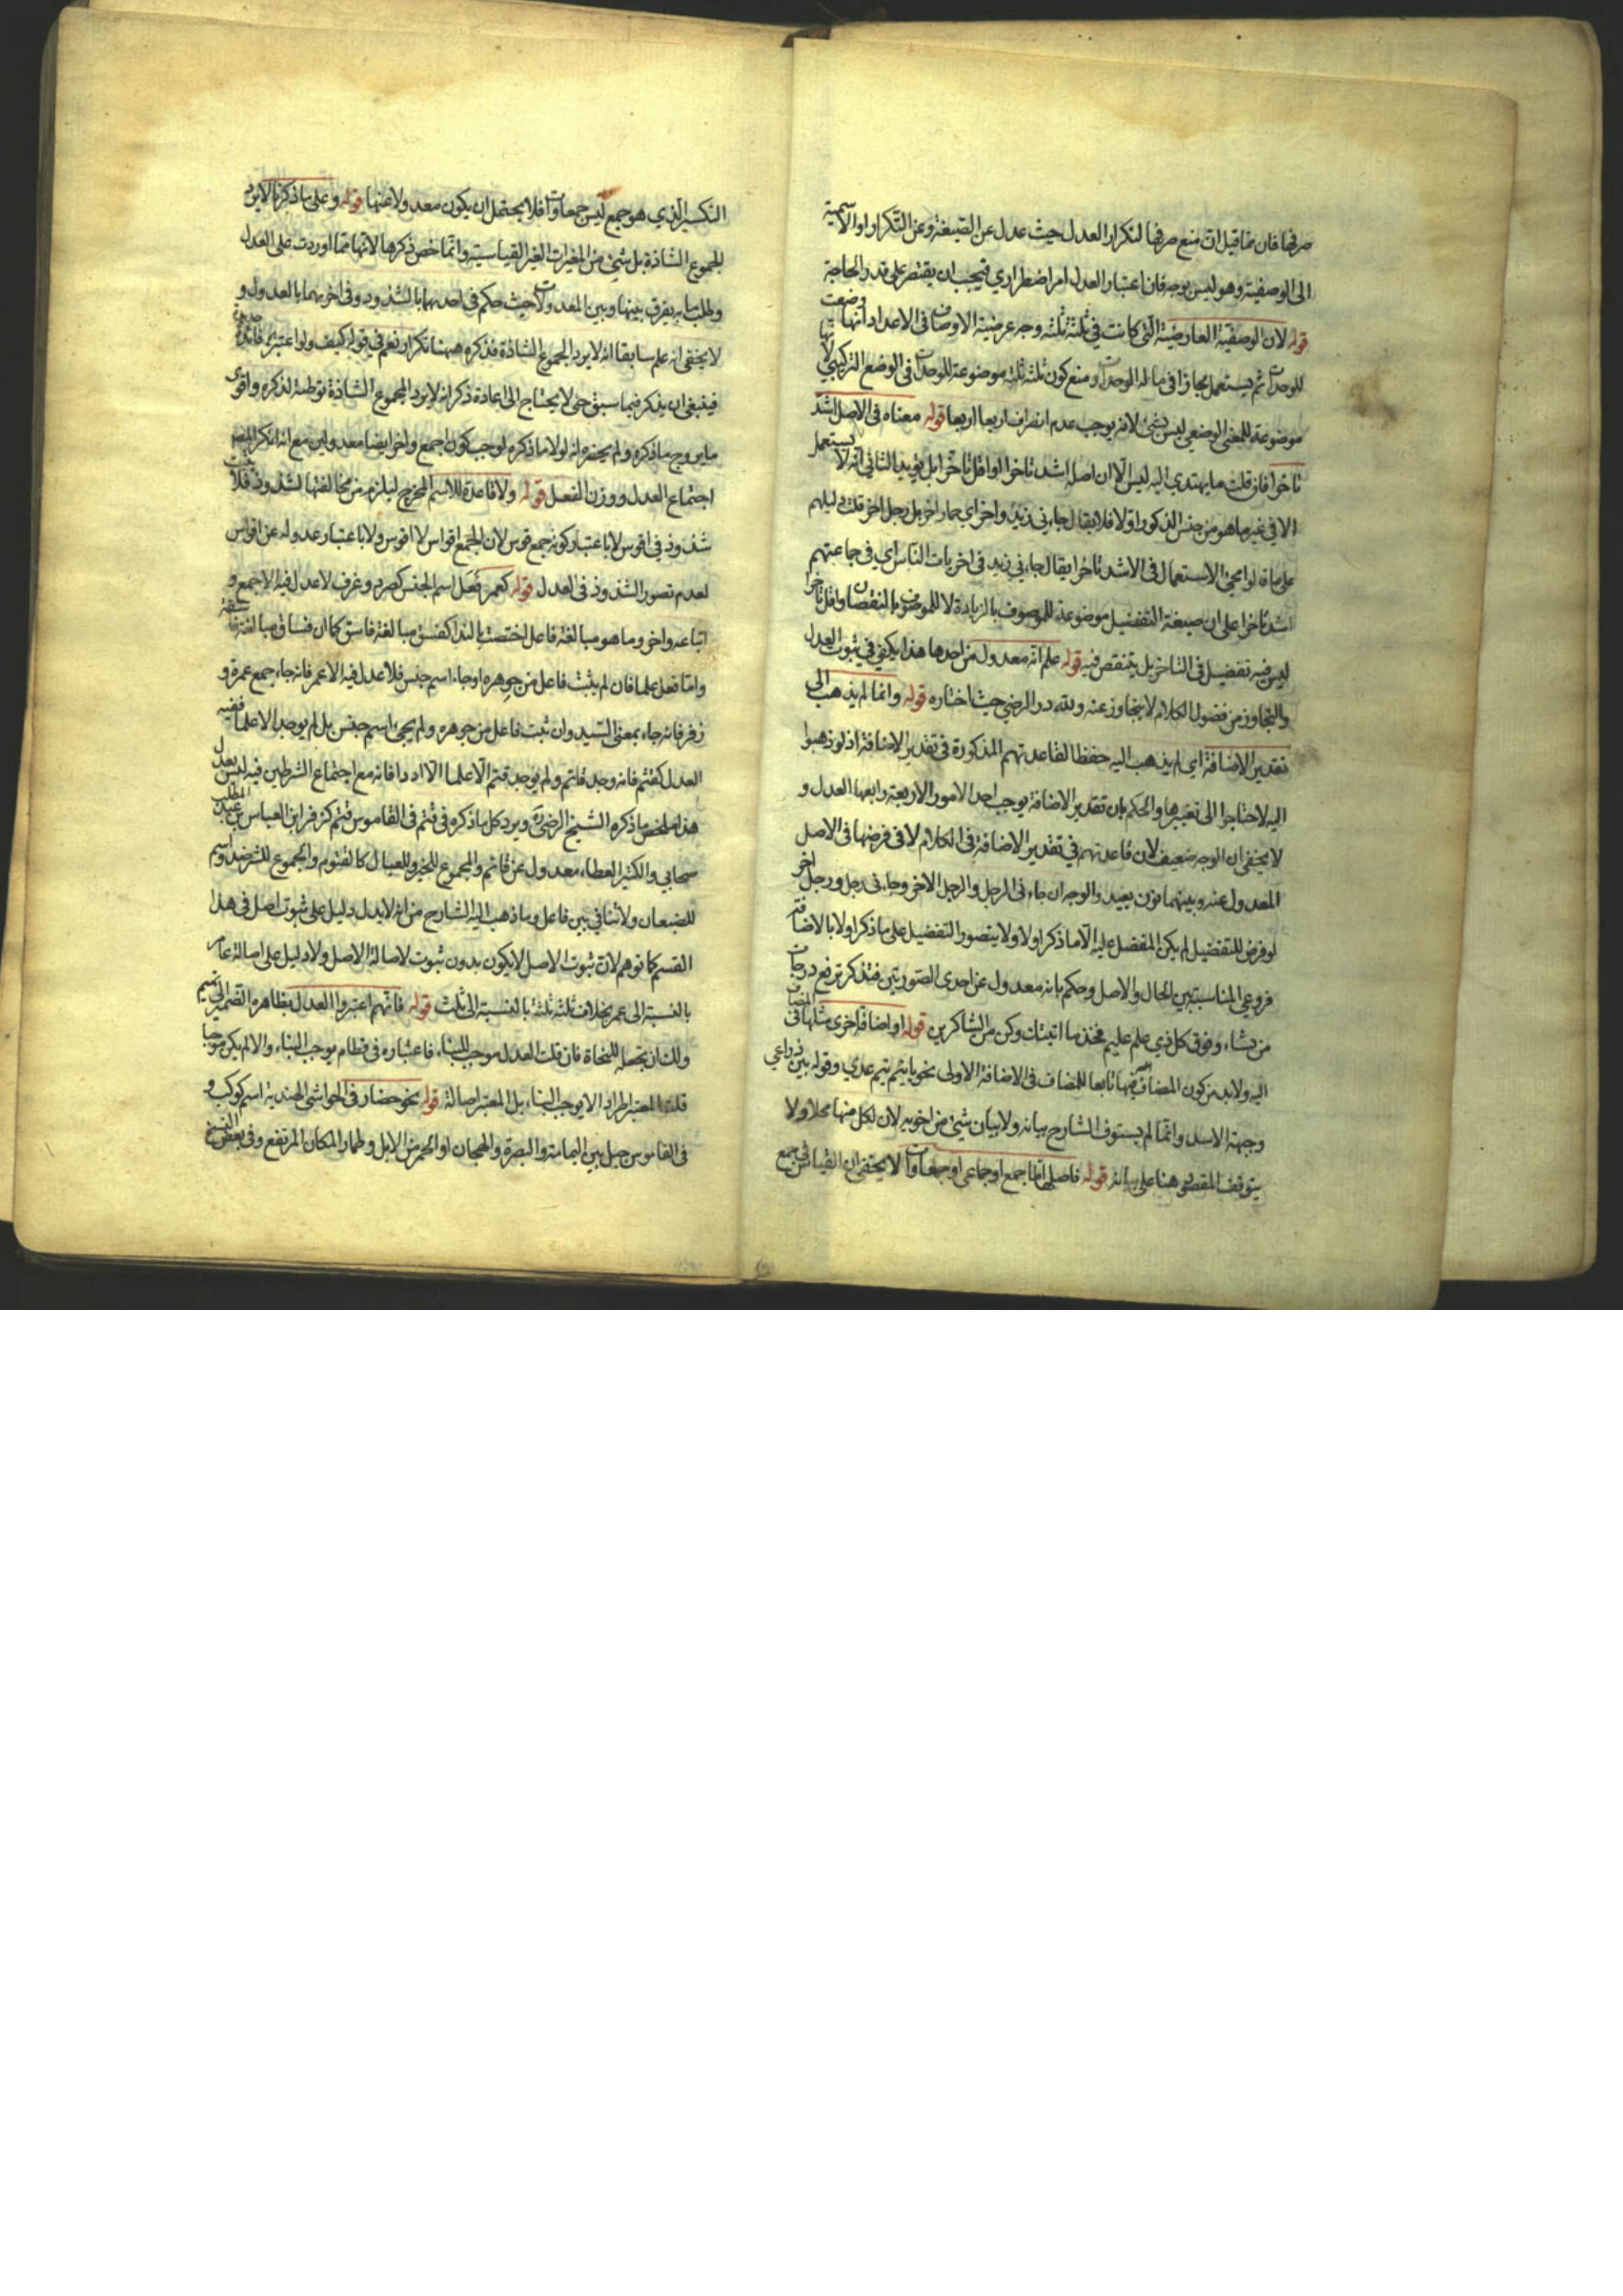 صرفها فان ما قيل ان منع صرفها لتكرار العدل حيث عدل عن الصيغة وعن التكرار او الاسمية
الى الوصفية وهو ليس بوجه فان اعتبار العدل امر اضطراري فيجب ان يقتصر على قدر الحاجة
قوله لان الوصفية العارضية التي كانت في ثلثة ثلثة وجه عرضية الاوصاف في الاعداد انها وضعت
للوحدات ثم يستعمل مجازا في ما له الوحدات ومنع كون ثلثة ثلثة موضوعة للوحدات في الوضع التركيبي
موضوعة للمعنى الوضعي ليس بشئ لانه يوجب عدم انصراف اربعا اربعا قوله معناه في الاصل اشد
تاخرا فان قلت ما يهتدي اليه ليس الا ان اصله اشد تاخرا او اقل تاخرا بل يؤيد الثاني انه لا يستعمل
الا في غير ما هو من جنس المذكور اولا فلا يقال جاءني زيد واخر اي حمار اخر بل رجل اخر قلت دليلهم
على ما قالوا مجئ الاستعمال في الاشد تاخرا يقال جاءني زيد في اخريات الناس اي في جماعتهم
اشد تاخرا على ان صيغة التفضيل موضوعة للموصوف بالزيادة لا للموصوف بالنقصان واقل تاخرا
ليس فيه تفضيل في التاخر بل يتنقص فيه قوله علم انه معدول من احدها هذا يكفي في ثبوت العدل
والتجاوز من فضول الكلام لا يتجاوز عنه ولله در الرضي حيث اختاره قوله وانما لم يذهب الى
تقدير الاضافة اي لم يذهب اليه حفظا لقاعدتهم المذكورة في تقدير الاضافة اذ لو ذهبوا
اليه لاحتاجوا الى تغييرها والحكم بان تقدير الاضافة يوجب احد الامور الاربعة رابعها العدل و
لا يخفى ان الوجه ضعيف لان قاعدتهم في تقدير الاضافة في الكلام لا في فرضها في الاصل
المعدول عنه وبينهما بون بعيد والوجه ان جاءني الرجل والرجل الاخر وجاءني رجل ورجل اخر
لو فرض للتفضيل لم يكن المفضل عليه الا ما ذكر اولا ولا يتصور التفضيل على ما ذكر اولا بالاضافة
فروعي المناسبة بين الحال والاصل وحكم بانه معدول عن احدى الصورتين فتذكر نرفع درجات
من نشاء وفوق كل ذي علم عليم فخذ ما اتيتك وكن من الشاكرين قوله او اضافة اخرى مثلها في المضاف
اليه ولا بد من كون المضاف فيها تابعا للمضاف في الاضافة الاولى نحو يا تيم تيم عدي وقوله بين ذراعي
وجبهة الاسد وانما لم يستوف الشارح بيانه ولا بيان شئ من اخويه لان لكل منها محلا ولا
يتوقف المقصود هنا على بيانه قوله فاصلها اما جمع او جماعى او جمعاوات لا يخفى ان القياس في جمع
التكسير الذي هو جمع ليس جمعاوات فلا يحتمل ان يكون معدولا عنها قوله وعلى ما ذكرنا لا يرد
الجموع الشاذة بل شئ من المغيرات الغير القياسية وانما خص ذكرها لانها مما اوردت على العدل
وطلب ما به يفرق بينها وبين المعدولات حيث حكم في احديهما بالشذوذ وفي اخريهما بالعدول و
لا يخفى انه علم سابقا انه لا يرد الجموع الشاذة فذكره ههنا تكرار نعم في قوله كيف ولو اعتبر فائدة جديدة
فينبغي ان يذكر فيما سبق حتى لا يحتاج الى اعادة ذكر انه لا يرد الجموع الشاذة توطئة لذكره واقوى
ما يروج ما ذكره ولم يحضره انه لولا ما ذكره لوجب كون اجمع واخر ايضا معدولين مع انه انكر المص
اجتماع العدل ووزن الفعل قوله ولا قاعدة للاسم المخرج ليلزم من مخالفتها الشذوذ فلا
شذوذ في اقوس لا باعتبار كونه جمع قوس لان الجمع اقواس لا اقوس ولا باعتبار عدوله عن اقواس
لعدم تصور الشذوذ في العدل قوله كعمر فعل اسم الجنس كصرد وغرف لا عدل فيه الا جمع و
اتباعه واخر وما هو مبالغة فاعل اختصت بالنداء كفسق مبالغة فاسق كما ان فساق مبالغة فاسقة
واما فعل علما فان لم يثبت فاعل من جوهره او جاء اسم جنس فلا عدل فيه الا عمر فانه جاء جمع عمرة و
زفر فانه جاء بمعنى السيد وان ثبت فاعل من جوهره ولم يجئ اسم جنس بل لم يوجد الا علما ففيه
العدل كقثم فانه وجد قاثم ولم يوجد قثم الا علما الا ادد فانه مع اجتماع الشرطين فيه ليس بعدل
هذا ملخص ما ذكره الشيخ الرضي ويرد كل ما ذكره في قثم في القاموس قثم كزفر ابن العباس بن عبد المطلب
صحابي والكثير العطاء معدول عن قاثم والجموع للخير وللعيال كالقثوم والجموع للشر ضد واسم
للضبعان ولا تنافي بين فاعل وما ذهب اليه الشارح من انه لا يدل دليل على ثبوت اصل في هذا
القسم كما توهم لان ثبوت الاصل لا يكون بدون ثبوت لاصالة الاصل ولا دليل على اصالة عامر
بالنسبة الى عمر بخلاف ثلثة ثلثة بالنسبة الى ثلث قوله فانهم اعتبروا العدل بظاهره الضمير الى تميم
ولك ان تجعله للنحاة فان قلت العدل موجب للبناء فاعتباره في قطام يوجب البناء والا لم يكن موجبا
قلت المعتبر اطرادا لا يوجب البناء بل المعتبر اصالة قوله نحو حضار في الحواشي الهندية اسم كوكب و
في القاموس جبل بين اليمامة والبصرة والهجان او الحمر من الابل وطمار المكان المرتفع وفي بعض النسخ